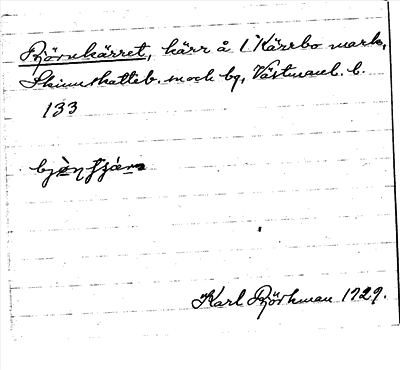 Björnkärret, kärr å l Kärrbo mark,
Skinnskatteb. sock o bg, Västmanl. l.
133
Karl Björkman 1929.